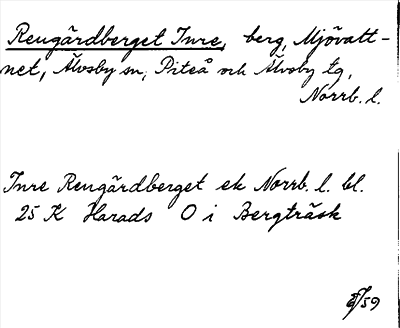 Rengärdberget Inre, berg, Mjövatt-
net, Älvsby sn, Piteå och Älvsby tg,
Norrb. l.
Inre Rengärdberget ek Norrb. l. bl.
25 K Harads O i Bergträsk
/59